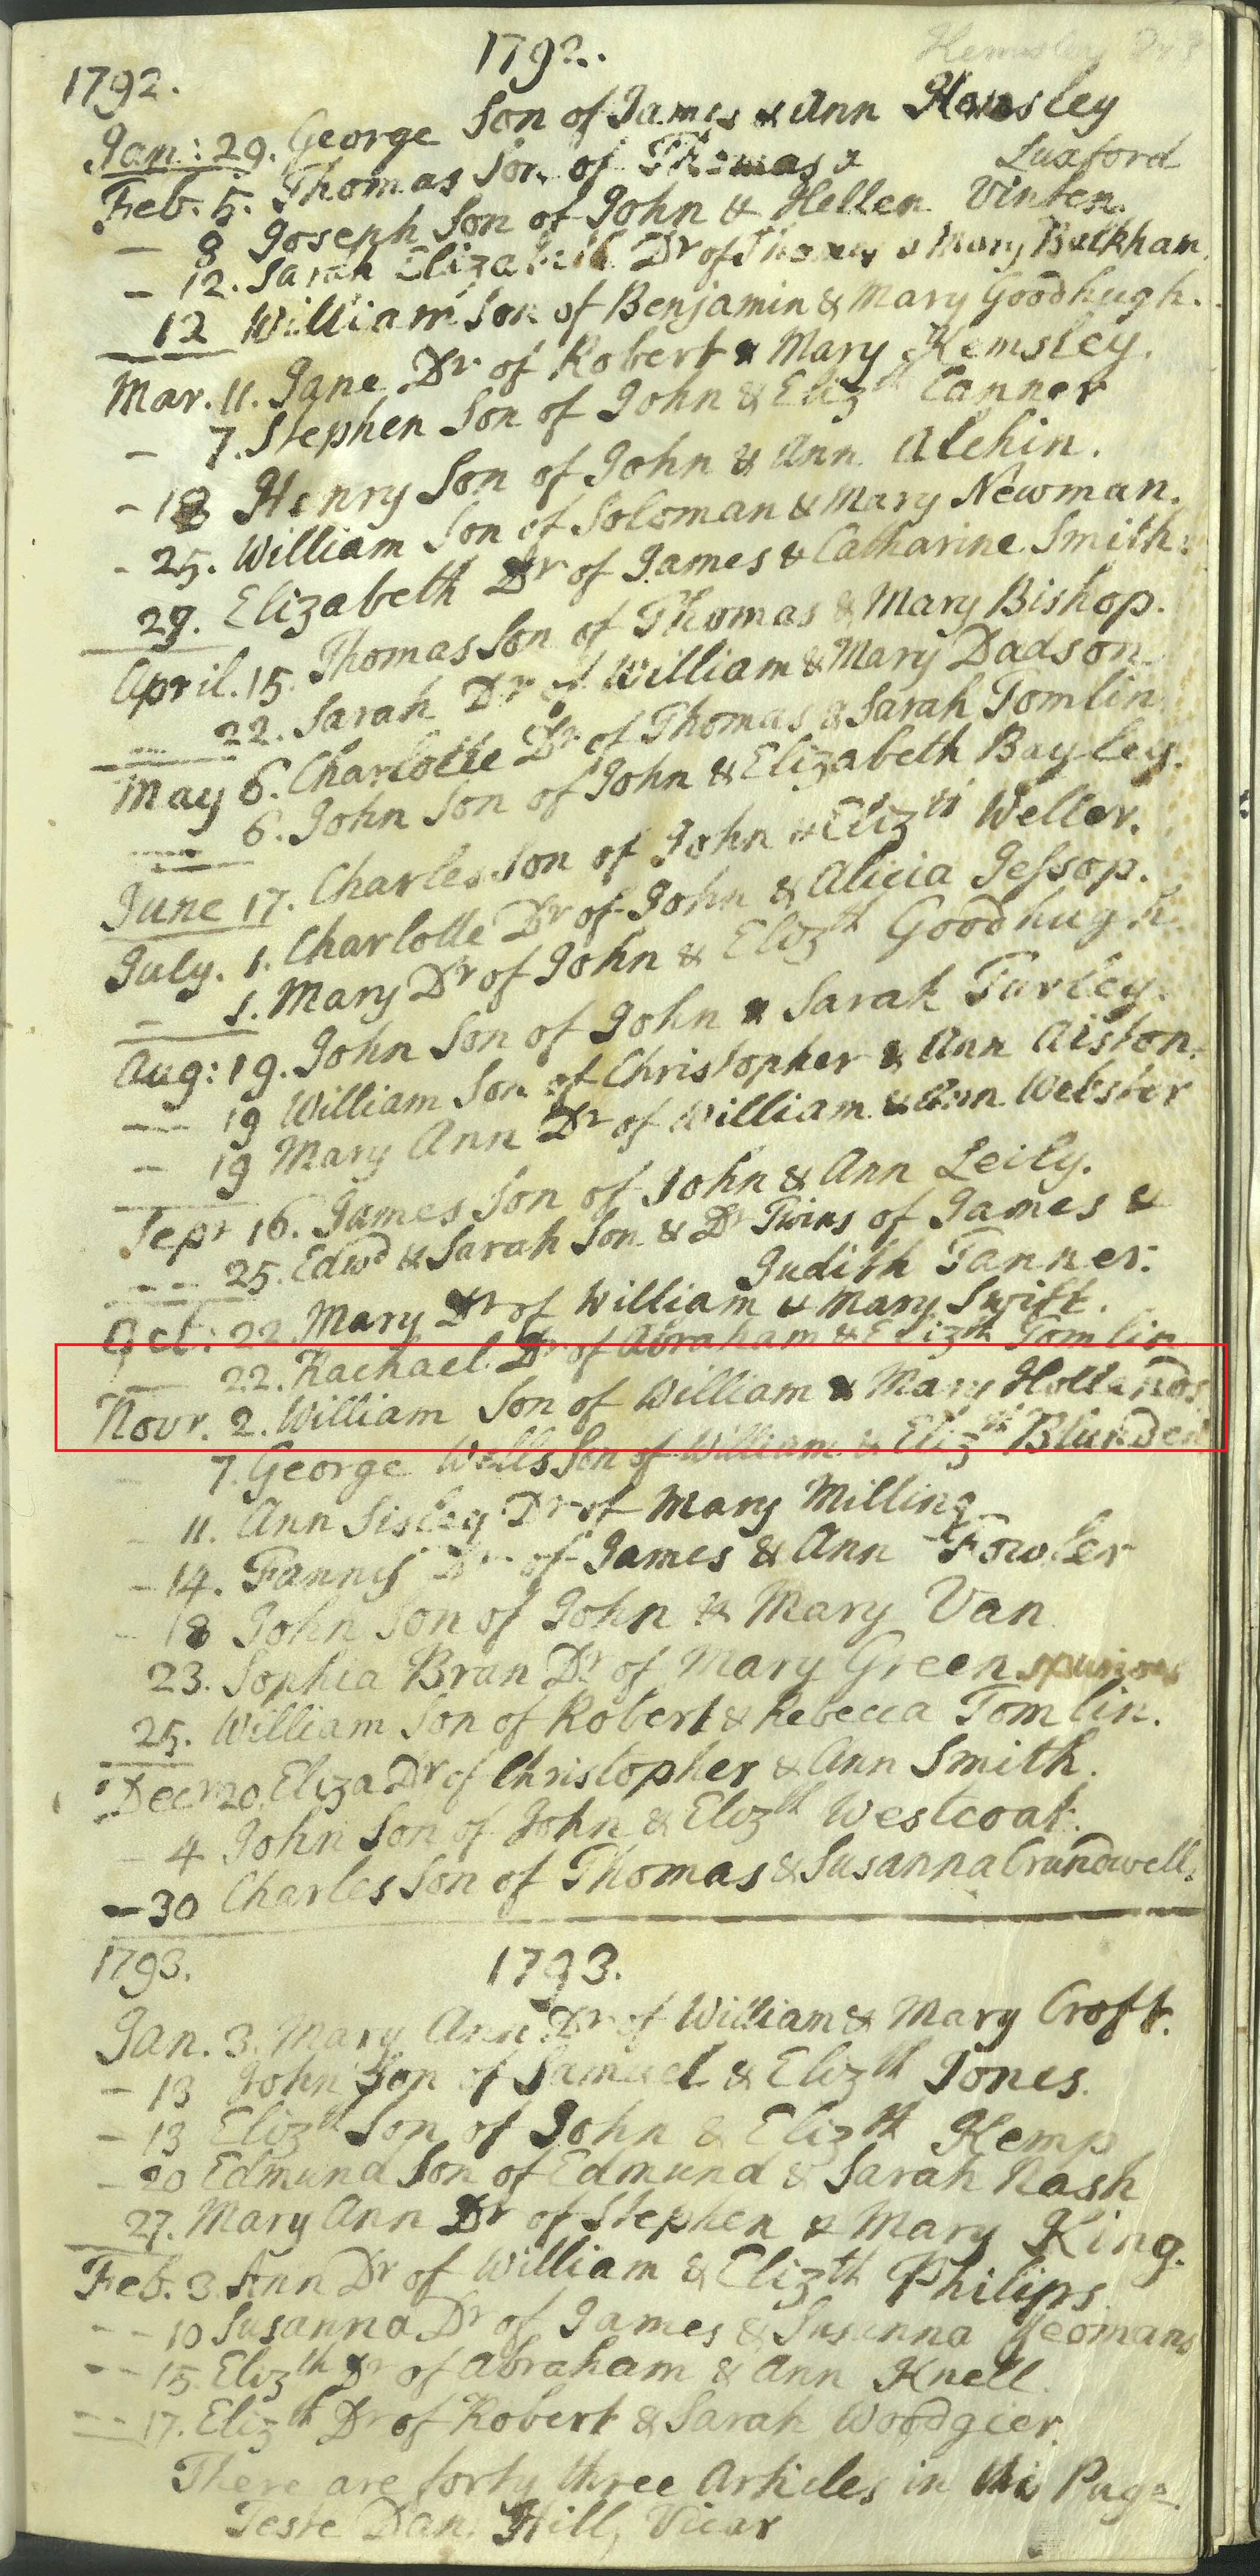 1792. 1792.
Jan: 29. George Son of James & Ann Hemsley
Feb. 5. Thomas Son of Thomas & Luxford
— 8 Joseph Son of John & Hellen Vinten.
— 12. Sarah Elizabeth Dr of Thomas & Mary Buckham.
12 William Son of Benjamin & Mary Goodhugh.
Mar. 11. Jane Dr of Robert & Mary Hemsley.
— 7. Stephen Son of John & Elizth Tanner
- 18 Henry Son of John & Ann Alchin.
- 25. William Son of Soloman & Mary Newman.
29. Elizabeth Dr of James & Catharine Smith.
April. 15. Thomas Son of Thomas & Mary Bishop.
— 22. Sarah Dr of William & Mary Dadson
May 6. Charlotte Dr of Thomas & Sarah Tomlin
— 6. John Son of John & Elizabeth Bayley.
June 17. Charles Son of John & Elizth Weller.
July. 1. Charlotte Dr of John & Alicia Jessop.
— 1. Mary Dr of John & Elizth Goodhugh.
Aug: 19. John Son of John & Sarah Turley.
— 19 William Son of Christopher & Ann Aiston.
— 19 Mary Ann Dr of William & Ann Webster
Sepr 16. James Son of John & Ann Leily.
-- 25. Edwd & Sarah Son & Dr Twins of James &
Judith Tanner.
Oct: 22. Mary Dr of William & Mary Swift.
— 22. Rachael Dr of Abraham & Elizth Tomlin
Novr. 2. William Son of William & Mary Hollands
7. George Wells Son of William & Elizth Blunden
11. Ann Sisley Dr of Mary Milling
-14. Fanny Dr of James & Ann Fowler
- 18 John Son of John & Mary Van
23. Sophia Bran Dr of Mary Green spurious
25. William Son of Robert & Rebecca Tomlin.
Decr 20. Eliza Dr of Christopher & Ann Smith.
- 4 John Son of John & Elizth Westcoat.
-30 Charles Son of Thomas & Susanna Crundwell.
1793. 1793.
Jan. 3. Mary Ann Dr of William & Mary Croft.
- 13 John Son of Samuel & Elizth Jones.
- 13 Elizth Son of John & Elizth Kemp
-20 Edmund Son of Edmund & Sarah Nash
27. Mary Ann Dr of Stephen & Mary King.
Feb. 3. Ann Dr of William & Elizth Philips.
--10 Susanna Dr of James & Susanna Yeomans
--15. Elizth Dr of Abraham & Ann Knell.
--17. Elizth Dr of Robert & Sarah Woodgier.
There are forty three Articles in this Page.
Teste Dan. Hill, Vicar